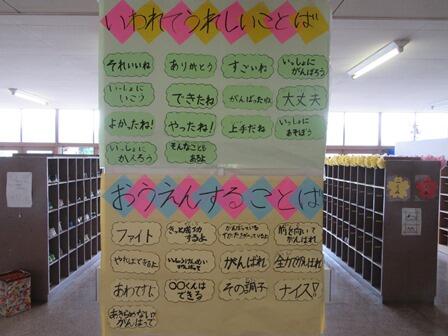 いわれてうれしいことば
それいいね
ありがとう
すごいね
いっしょに
がんばろう
いっしょに
いこう
できたね
がんばったね
大丈夫
よかったね!
やったね!
上手だね
いっしょに
あそぼう
いっしょに
かえろう
そんなことも
あるよ
おうえんすることば
ファイト
きっと成功
するよ
前を向いて
がんばれ
やればできるよ
いっしょうけんめい
がんばって
がんばれ
全力でがんばれ
おちついて
〇〇くんは
できる
その調子
ナイス!
あきらめないで
がんばって